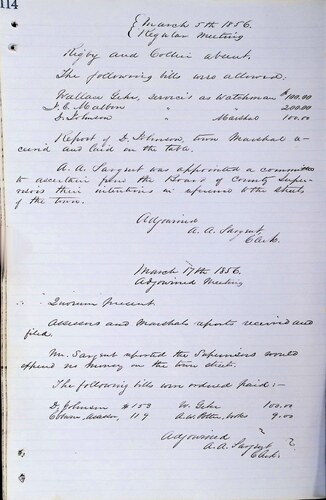 114
March 5th 1856.
Regular Meeting
Rigby and Collier absent.
The following bills were allowed:
Wallace Gehr, services as Watchman $100.00
" 200.00
D. Johnson Marshal 100.00
Report of D. Johnson, town Marshal re-
ceived and laid on the table.
A. A. Sargent was appointed a committee
to ascertain from the Board of County Super-
visors their intentions in reference to the streets
of the town.
Adjourned
A. A. Sargent
Clerk.
March 17th 1856.
Adjourned Meeting
Quorum Present
Assessors and Marshals reports received and
filed.
Mr. Sargent reported the Supervisors would
expend no money on the town streets.
The following bills were ordered paid:-
D. Johnson $153 W. Gehr 100.00
Assessor, 119 9.00
Adjourned
A. A. Sargent
Clerk.